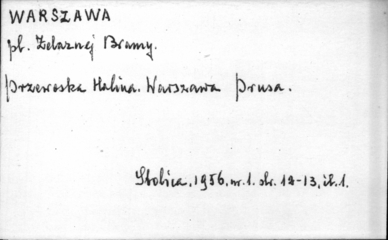 WARSZAWA
pl. Żelaznej Bramy.
Przewoska Halina. Warszawa Prusa.
Stolica, 1956, nr. 1. str. 12-13, il. 1.